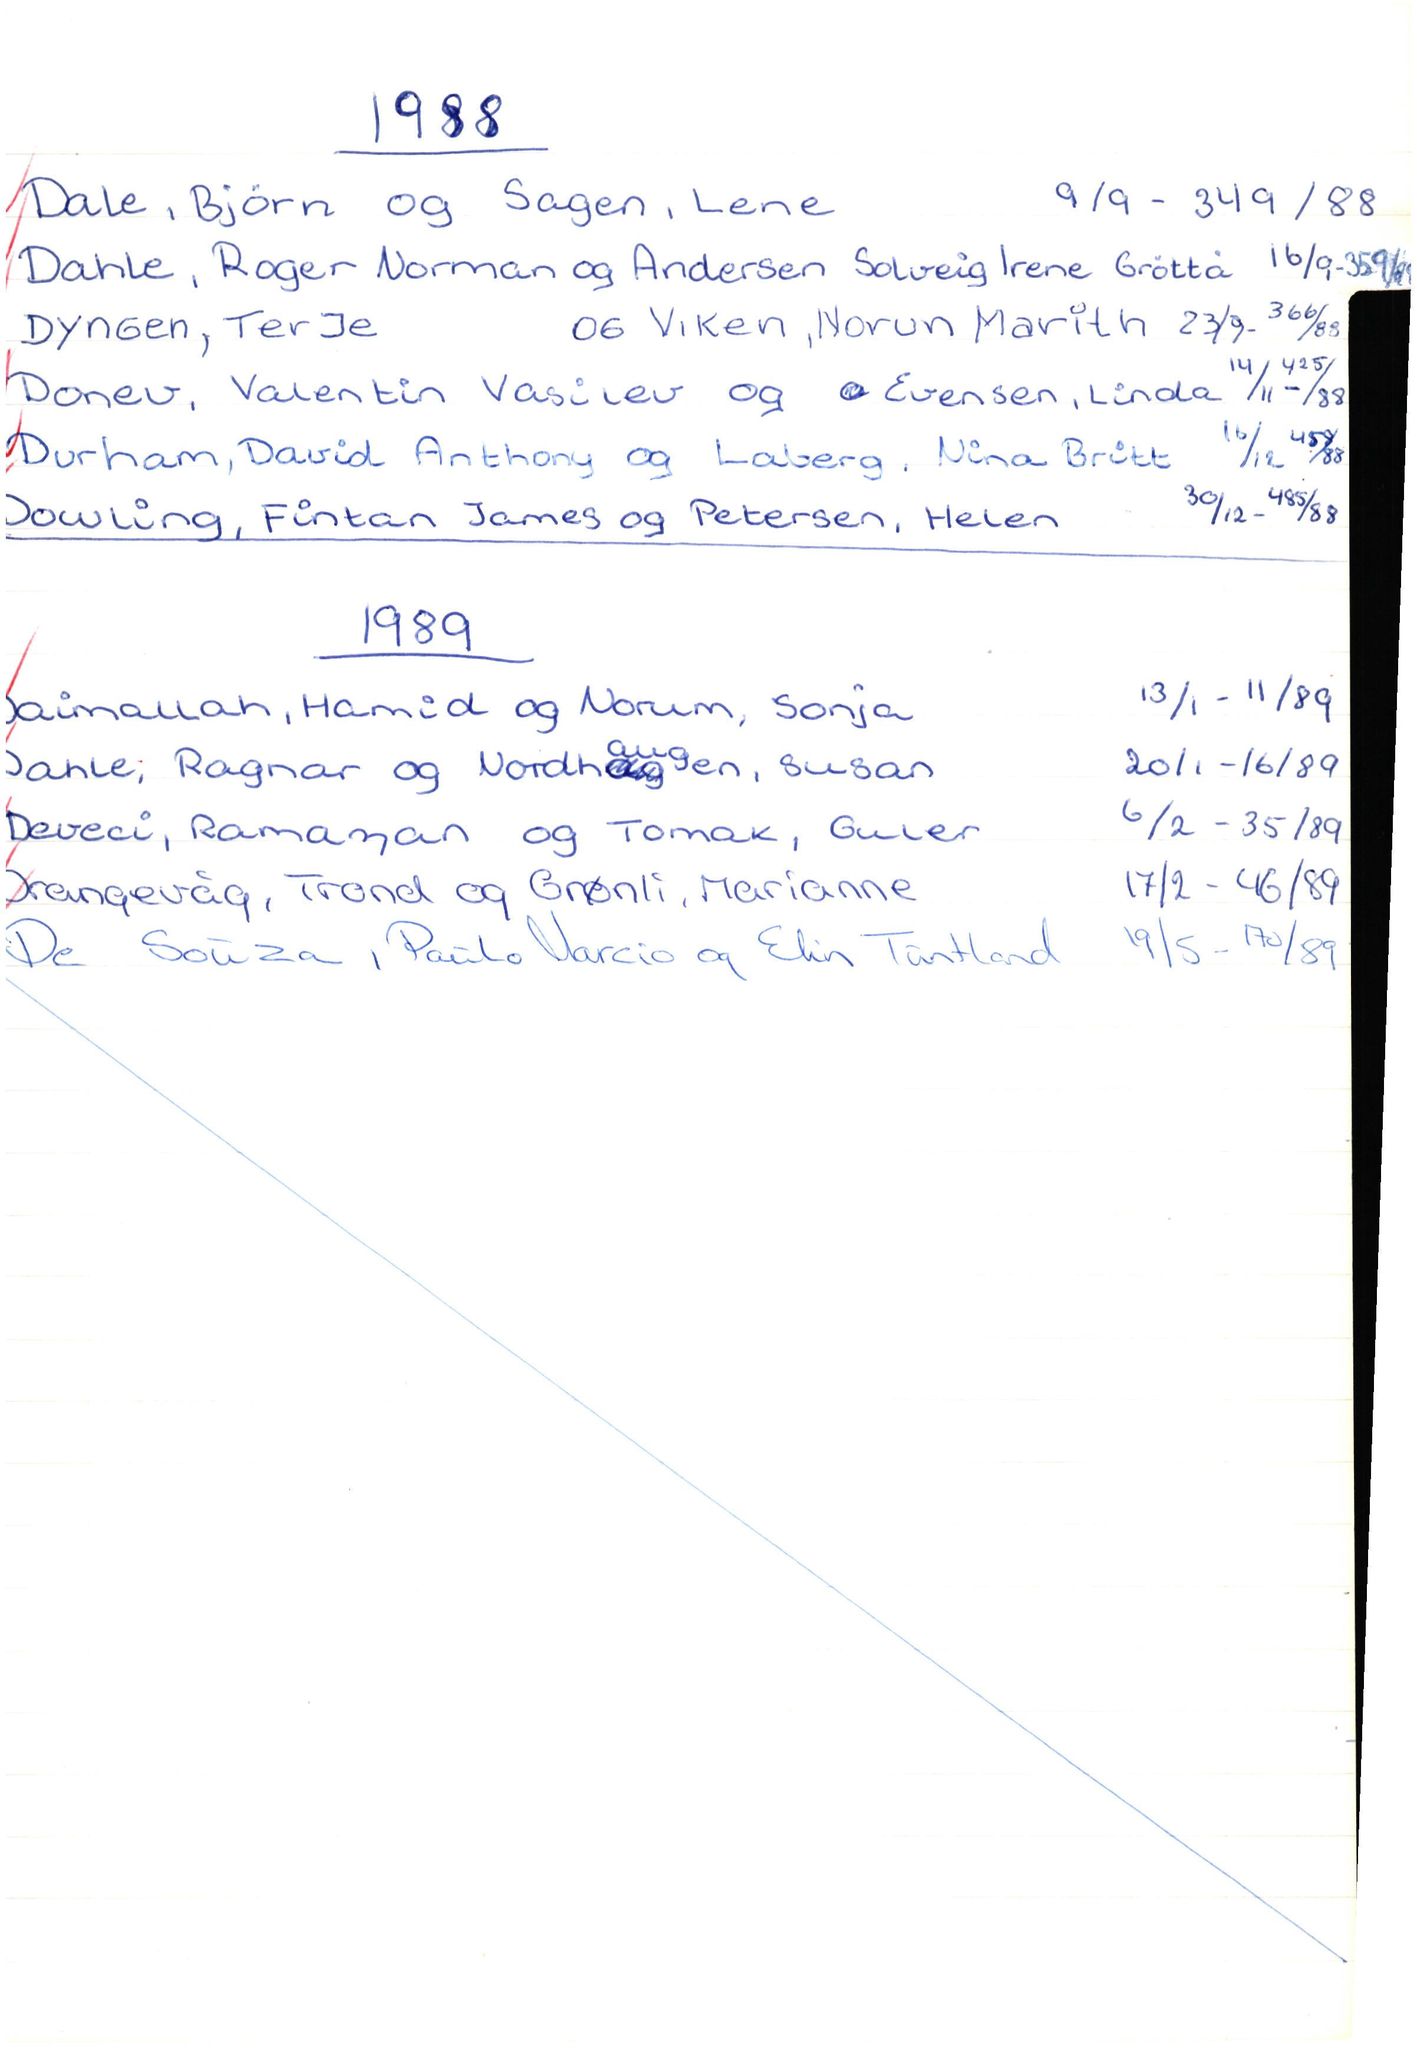 1988
Dale, Björn og Sagen, Lene 9/9 - 349/88
Dahle, Roger Norman og Andersen Solveig Irene Gröttå 16/9-359/88
DYNGEN, TERJE OG VIKEN, NORUN MARITH 23/9-366/88
Donev, Valentin Vasilev og Evensen, Linda 14/11-425/88
Durham, David Anthony og Laberg, Nina Britt 16/12 458/88
Dowling, Fintan James og Petersen, Helen 30/12-485/88
1989
Daimallah, Hamid og Norum, Sonja 13/1 - 11/89
Dahle, Ragnar og Nordhaugen, Susan 20/1 - 16/89
Deveci, Ramazan og Tomak, Guler 6/2 - 35/89
Drangevåg, Trond og Grønli, Marianne 17/2 - 46/89
De Souza, Paulo Marcio og Elin Tuntland 19/5 - 170/89